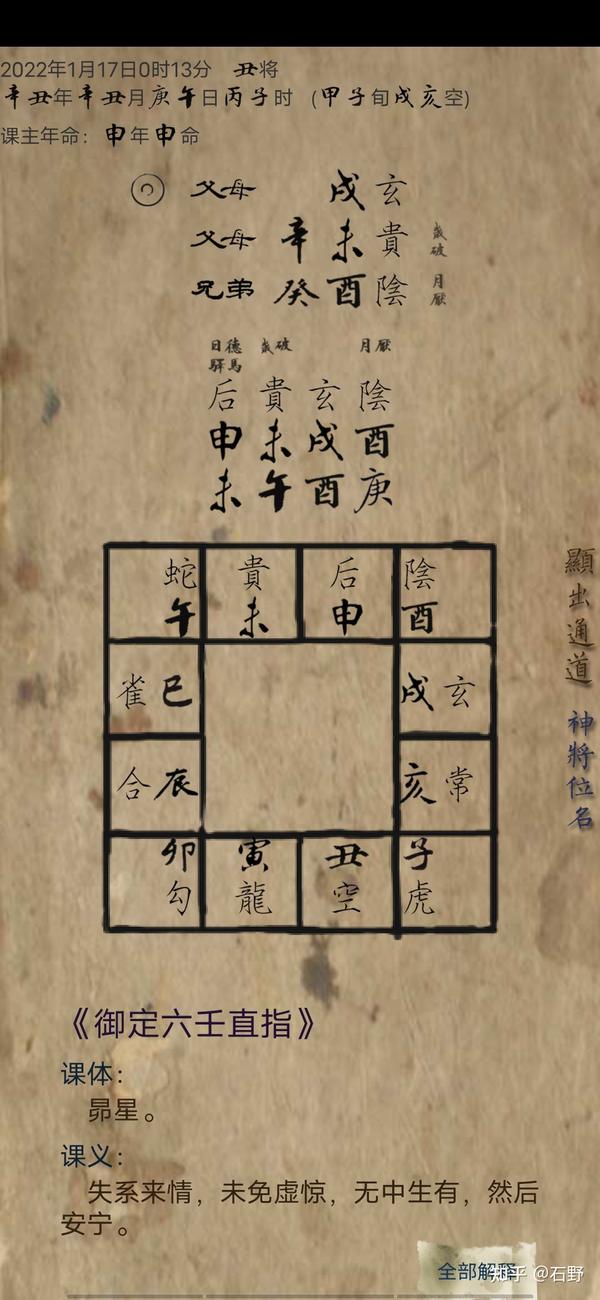 2022年1月17日0时13分 丑将
辛丑年辛丑月庚午日丙子时 (甲子旬戌亥空)
课主年命：申年申命
父母 戌 玄
父母 辛 未 貴 歲破
兄弟 癸 酉 陰 月厭
日德 歲破 月厭
驛馬
后 貴 玄 陰
申 未 戌 酉
未 午 酉 庚
蛇 貴 后 陰
午 未 申 酉
雀 巳 戌 玄
合 辰 亥 常
卯 寅 丑 子
勾 龍 空 虎
顯出通道
神將位名
《御定六壬直指》
课体：
昴星。
课义：
失系来情，未免虚惊，无中生有，然后
安宁。
全部解释
知乎 @石野